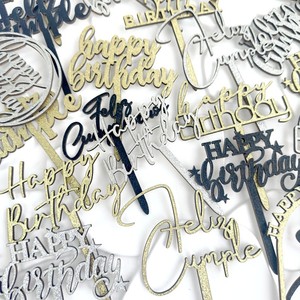 Feliz
Cumple
BIRTHDAY
Feliz
Cumple
happy
birthday
Feliz
Cumple
happy
birthday
happy
birthday
HAPPY
birthday
Happy
Birthday
Feliz
Cumple
HAPPY
birthday